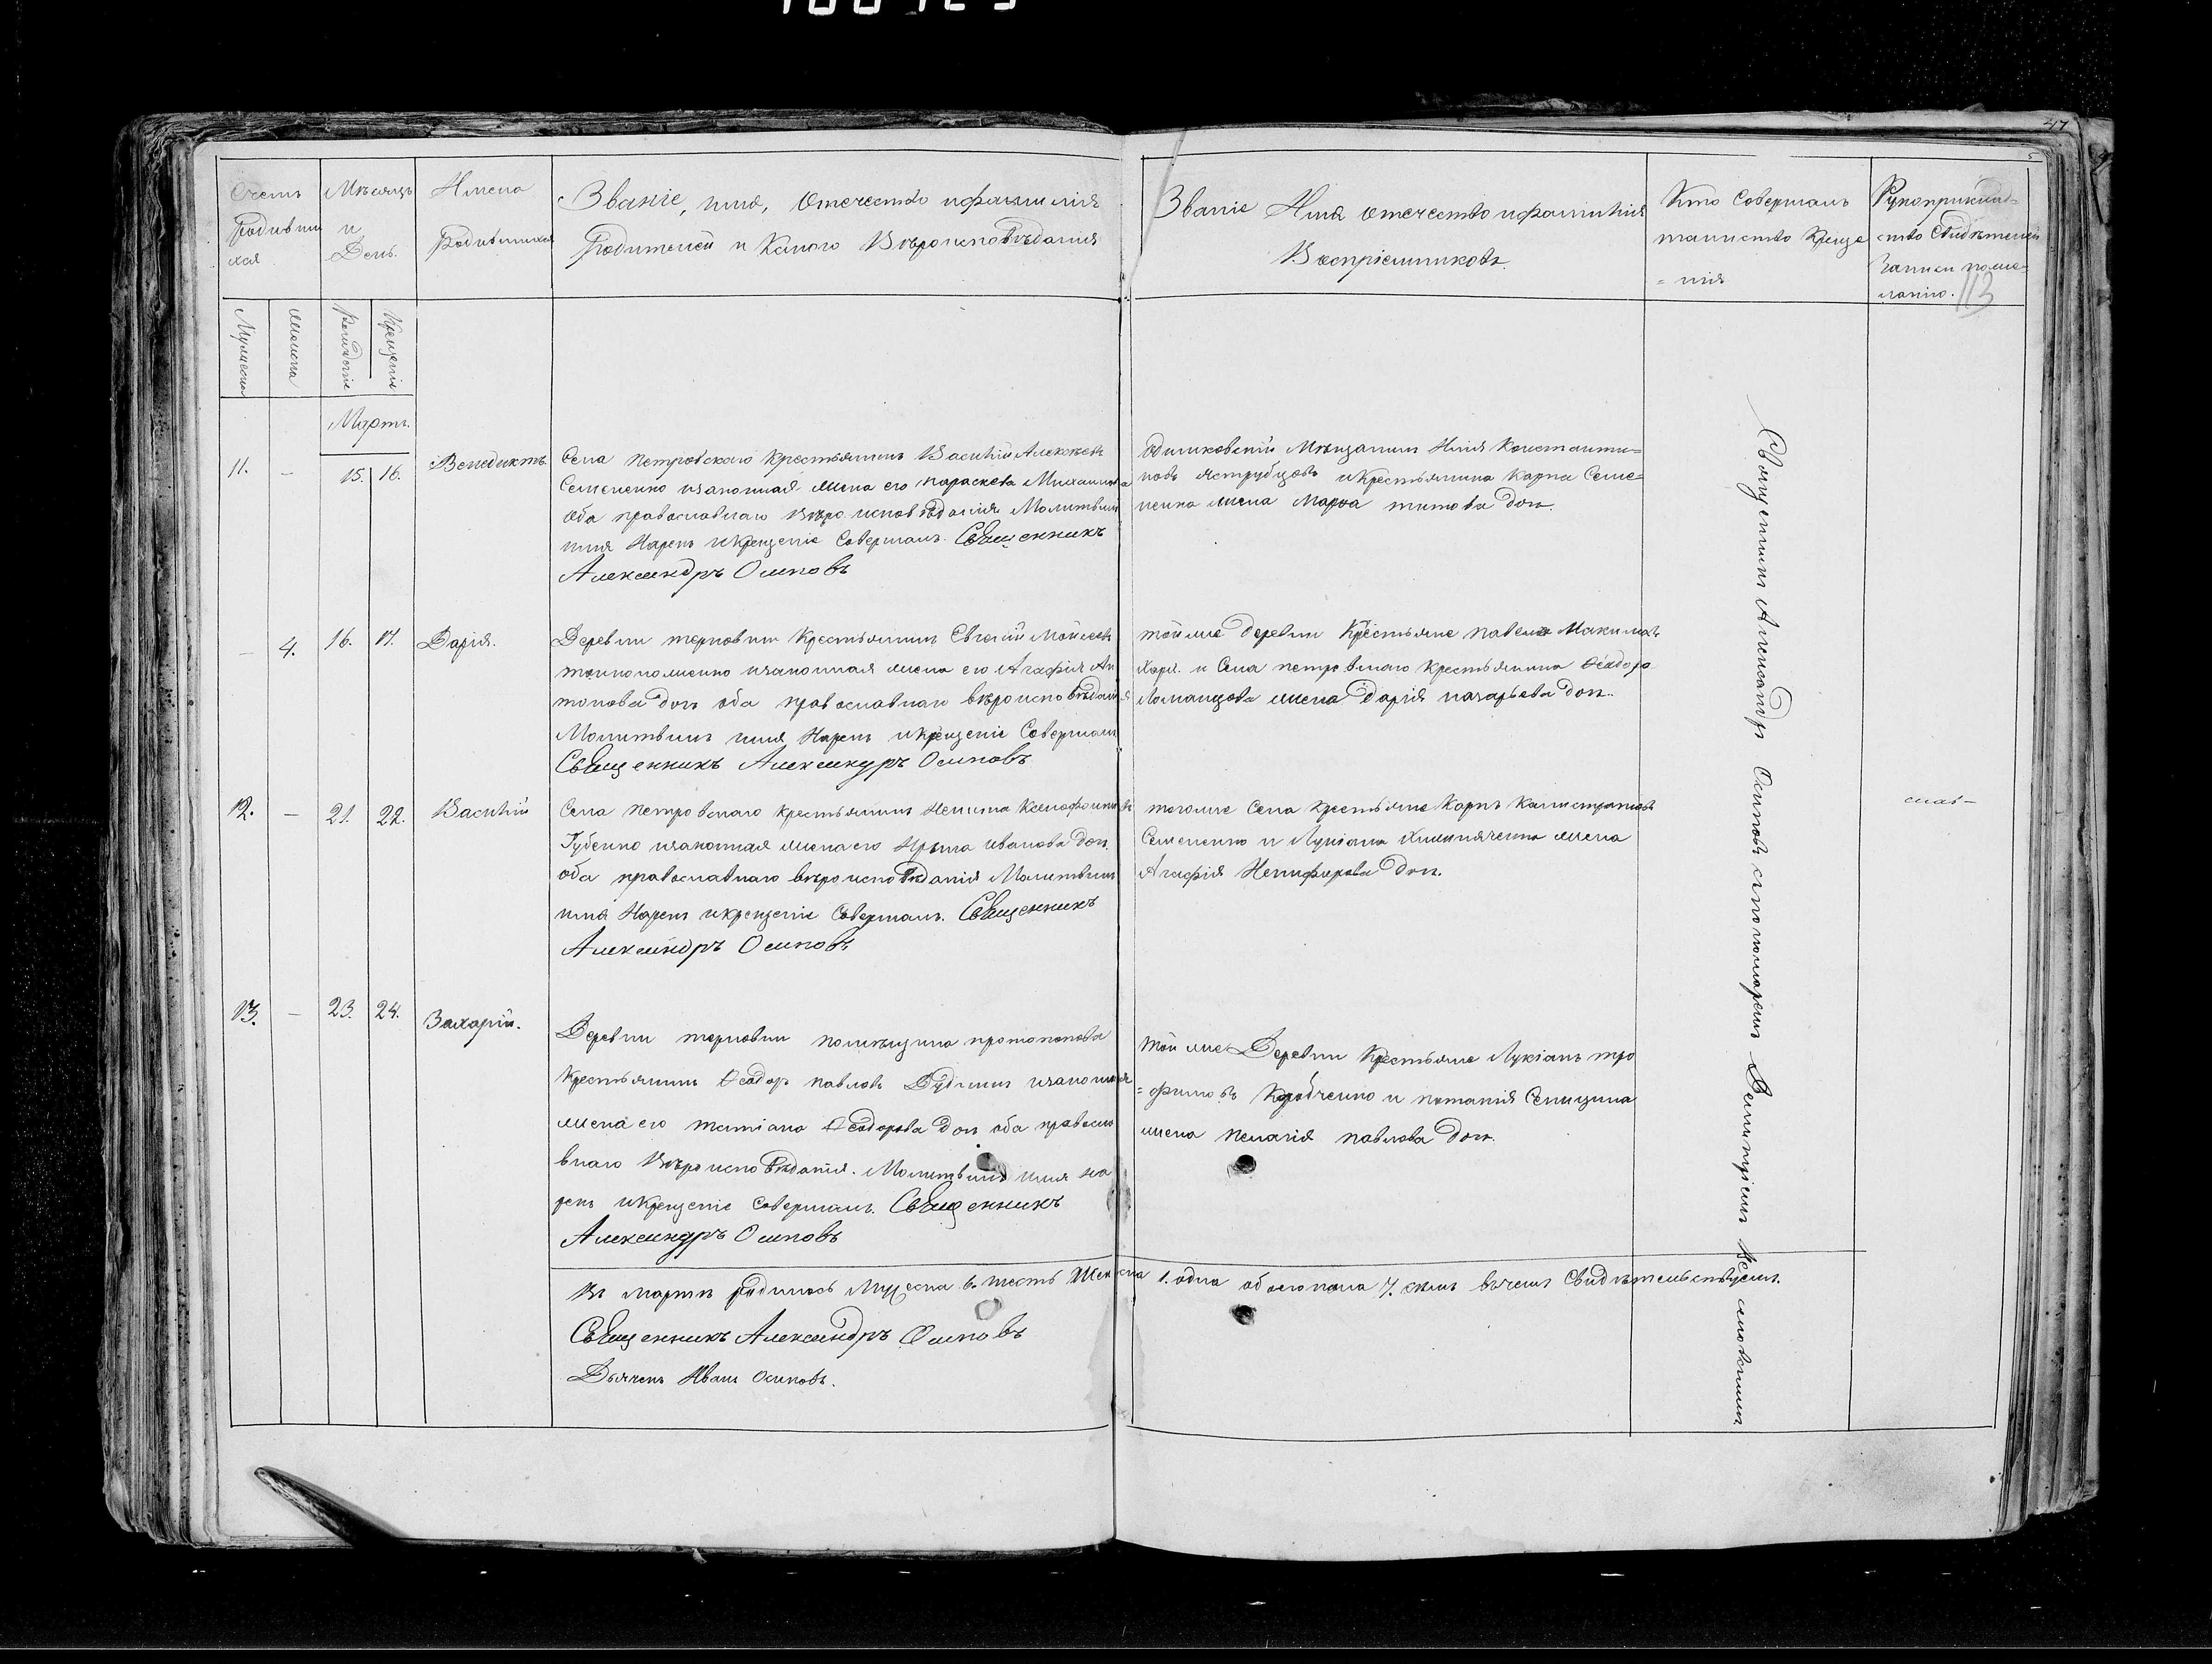 47
5
Счетъ
Родивши
хся
Мѣсяцъ
и
День.
Имена
Родившихся
Званіе, имя, Отечество ифамилія
Родителей и Какого Вѣроисповѣданія
Званіе Имя отечество ифамилія
Воспріемниковъ.
Кто Совершалъ
таинство Креще
=нія
Рукоприклад=
ство Свидѣтелей
Записи поже=
ланію. 113
Мужеска
женска
Рожденіе
Крещеніе
Мартъ.
11.
—
15. 16.
Венедиктъ.
Села Петровскаго Крестьянинъ Василій Алексѣевъ
Семененко изаконная жена его параскева Михаилова
оба православнаго вѣроисповѣданія Молитвилъ
имя Нарекъ икрещеніе Совершалъ. Священникъ
Александръ Осиповъ
Мѣщанинъ Илія Константи=
новъ Яструбцовъ иКрестьянина Карпа Семе=
ненка жена Марѳа титова доч.
—
4.
16. 17.
Дарія.
Деревни терновки Крестьянинъ Евгеній Моисеевъ
изаконная жена его Агафія Ан
тонова доч оба православнаго вѣроисповѣданія
Молитвилъ имя Нарекъ икрещеніе Совершалъ
Священникъ Александръ Осиповъ
той же деревни Крестьяне павелъ Максимовъ
и Села петровскаго крестьянина Ѳеодора
Ломанцова жена Дарія назарьева доч.
12.
—
21. 22.
Василій
Села Петровскаго крестьянинъ Никита Ксенофонтовъ
Губенко изаконная жена его Ирина иванова доч.
оба православнаго вѣроисповѣданія Молитвилъ
имя Нарекъ икрещеніе Совершалъ. Священникъ
Александръ Осиповъ
тогоже Села крестьяне Карпъ Калистратовъ
Семененко и Лукіана жена
Агафія Никифорова доч.
13.
—
23. 24.
Захарій.
Деревни терновки помѣщика протопопова
Крестьянинъ Ѳеодоръ павловъ Дудинъ изаконная
жена его татіана Ѳеодорова доч оба правосла
внаго Вѣроисповѣданія. Молитвилъ имя на
рекъ иКрещеніе Совершалъ. Священникъ
Александръ Осиповъ
той же Деревни Крестьяне Лукіанъ тро
=фимовъ Коробченко и потапія Сеницина
жена пелагія павлова доч.
Священникъ Александръ Осиповъ съ пономаремъ
Въ мартѣ родилось Мужеска 6. шесть Женска 1. одна обоего пола 7. семь вѣчемъ Свидѣтельствуемъ.
Священникъ Александръ Осиповъ
Дьячекъ Иванъ Осиповъ.